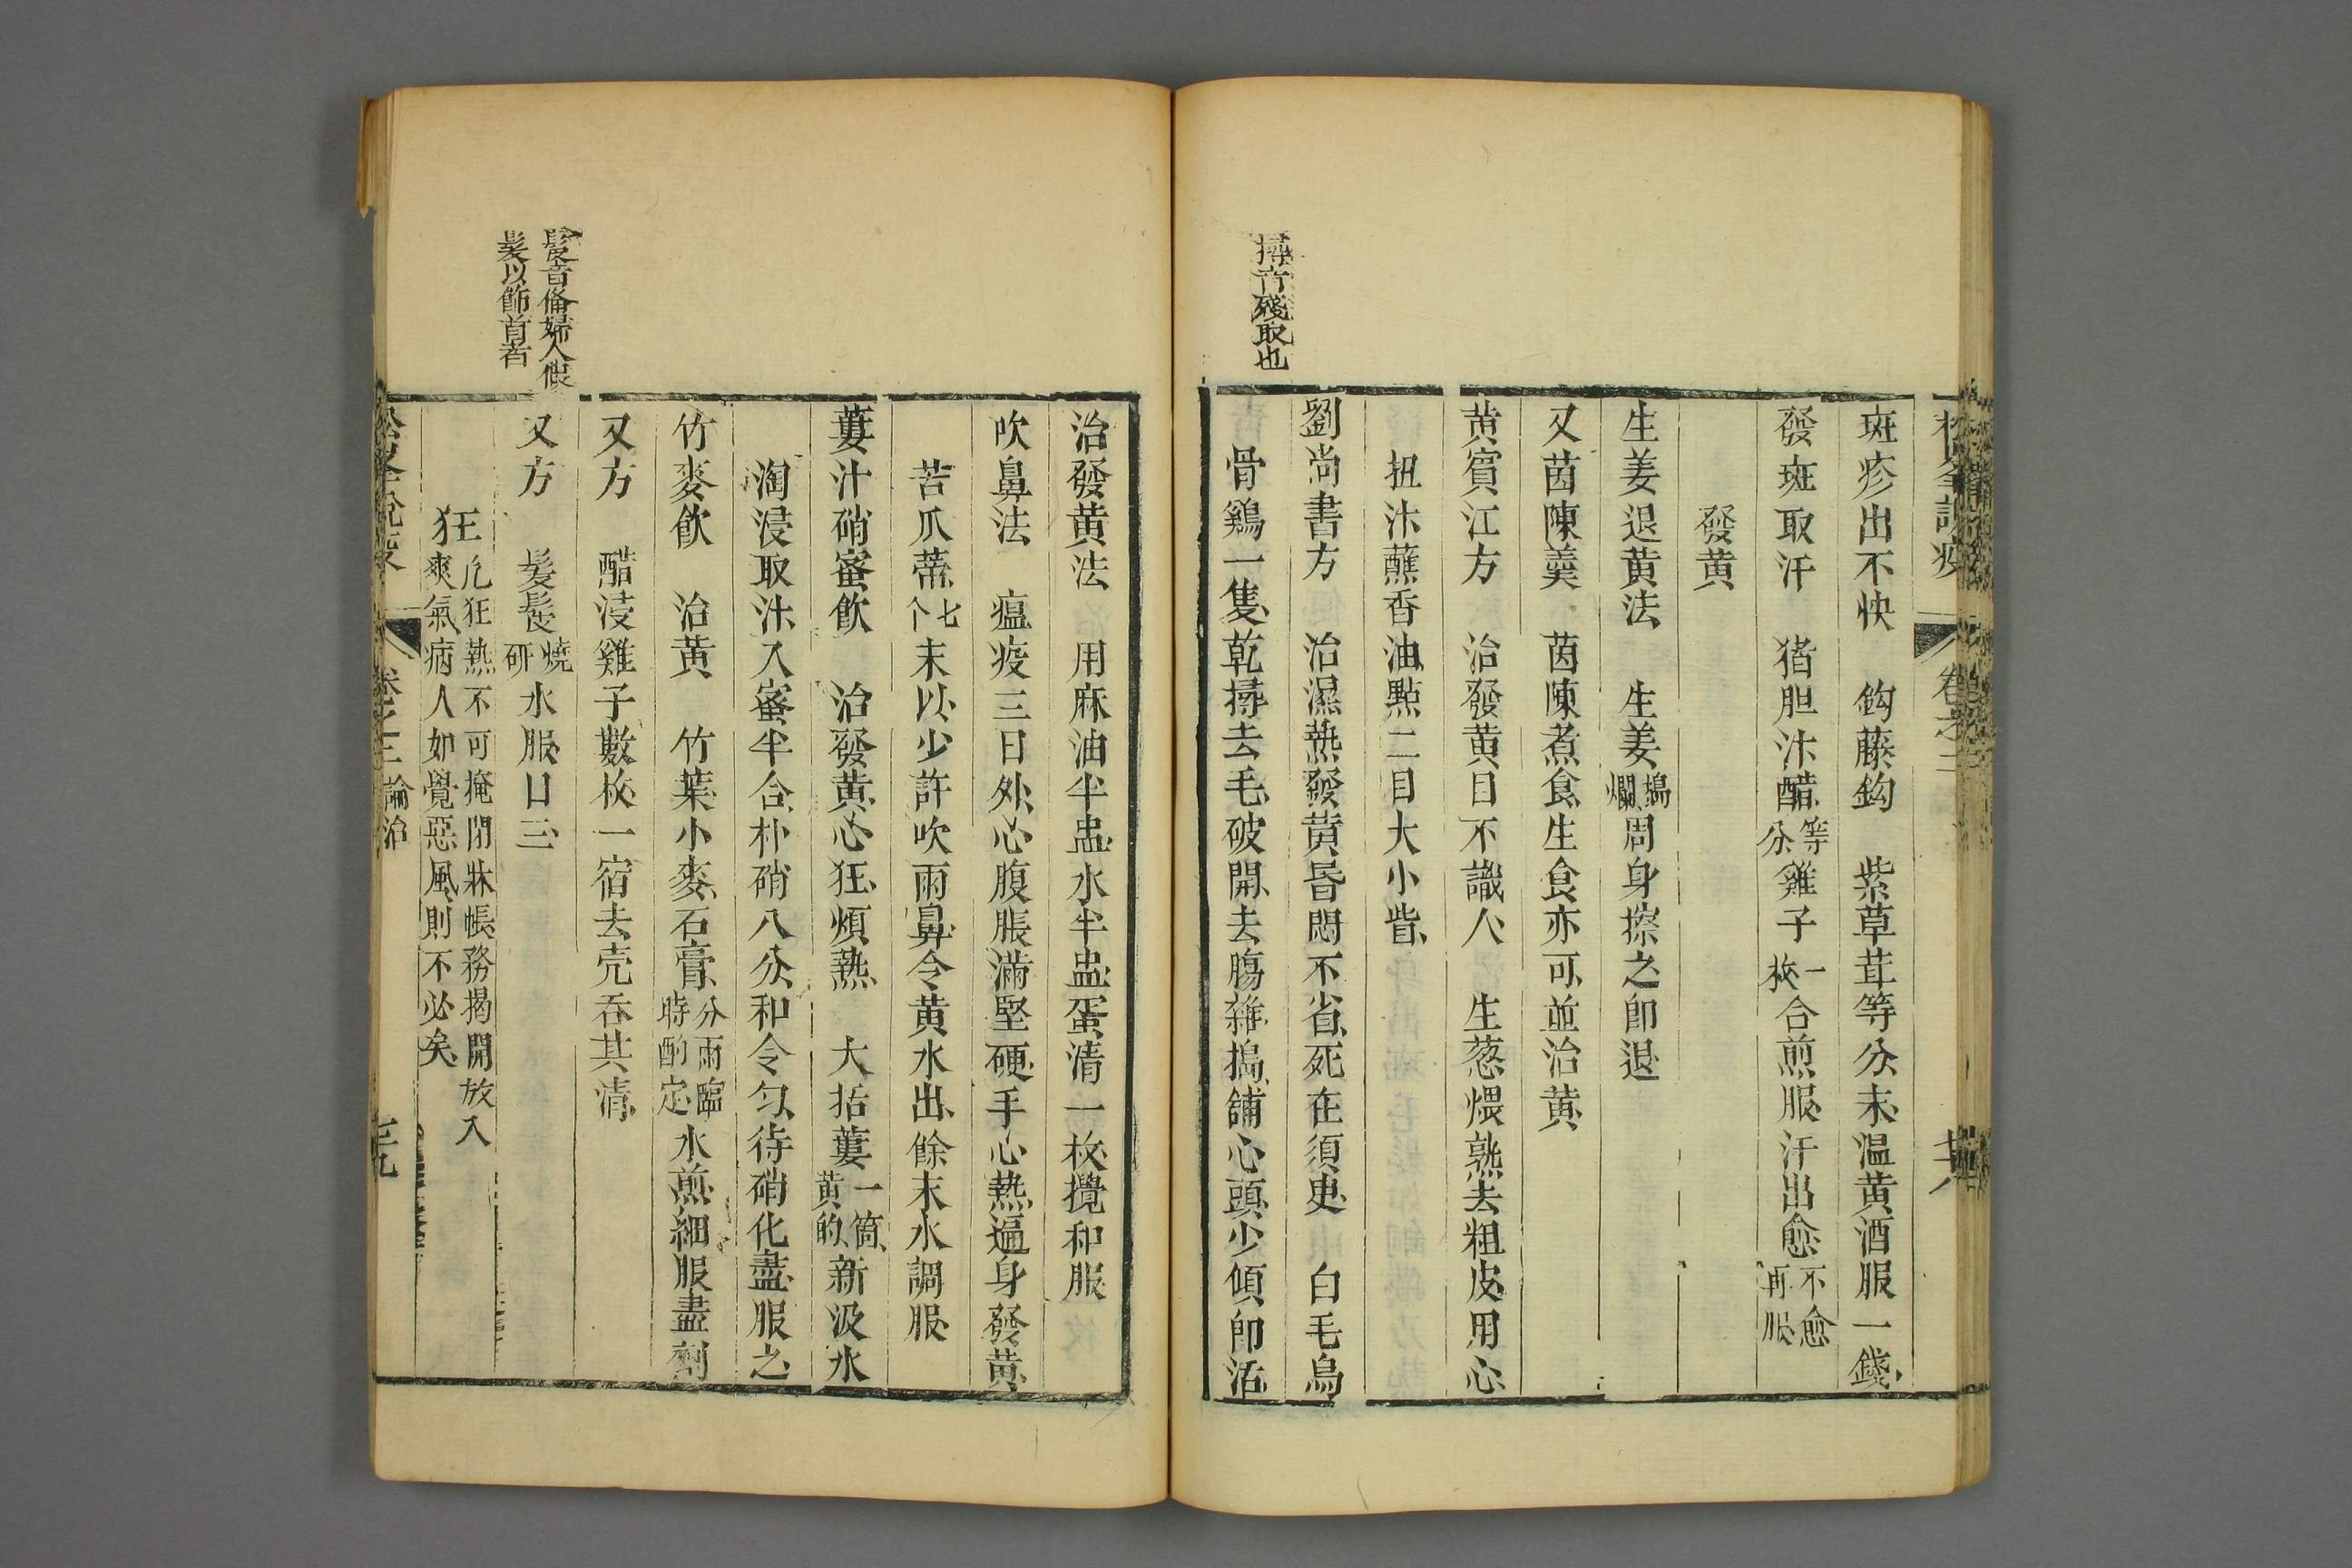 斑疹出不快　鈎藤鈎　紫草茸等分末温黄酒服一錢
發斑取汗　猪胆汁醋等分雞子一枚合煎服汗出愈不愈再服
發黄
生姜退黄法　生姜搗爛周身擦之卽退
又茵陳羹　茵陳煮食生食亦可並治黄
黄賓江方　治發黄目不識人　生葱煨熟去粗皮用心
扭汁蘸香油點二目大小眥
劉尚書方　治濕熱發黄昏悶不省死在須臾　白毛烏
骨鷄一隻乾撏去毛破開去膓雜搗鋪心頭少傾卽活
撏音殘取也
治發黄法　用麻油半盅水半盅蛋清一枚攪和服
吹鼻法　瘟疫三日外心腹脹滿堅硬手心熱遍身發黄
苦瓜蒂七个末以少許吹兩鼻令黄水出餘末水調服
蔞汁硝蜜飲　治發黄心狂煩熱　大括蔞一箇黄的新汲水
淘浸取汁入蜜半合朴硝八分和令匀待硝化盡服之
竹麥飲　治黄　竹葉小麥石膏分兩臨時酌定水煎細服盡劑
又方　醋浸雞子數枚一宿去壳吞其清
又方　髮髲燒研水服日三
狂凡狂熱不可掩閉牀帳務揭開放入爽氣病人如覺惡風則不必矣
髲音俻婦人假
髮以飾首者
松峯說疫　卷之三論治